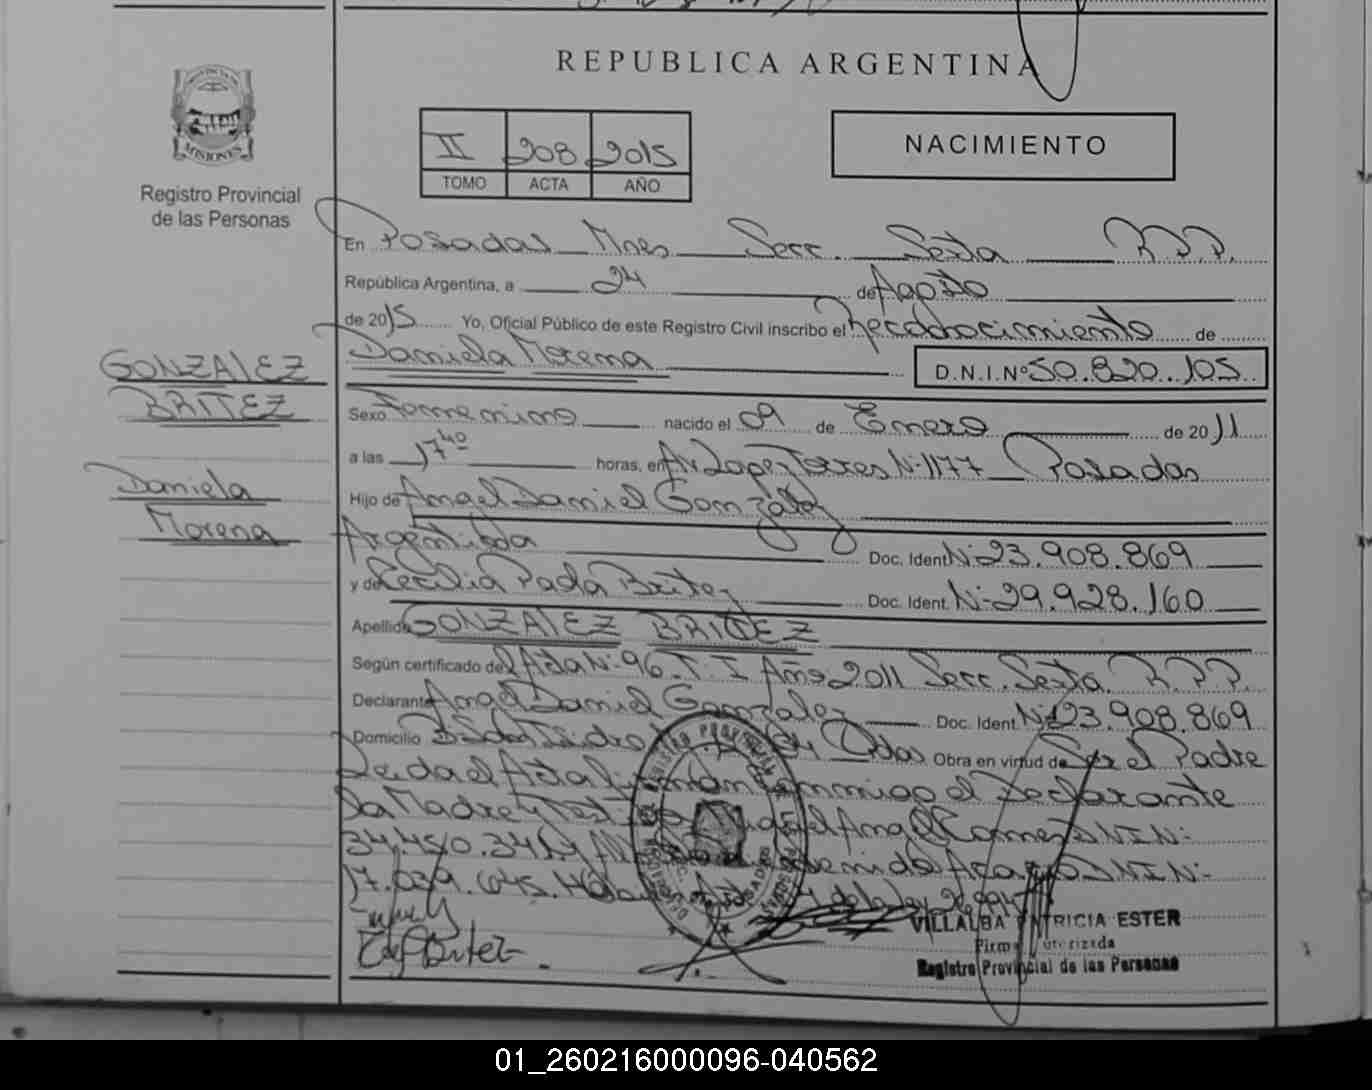 REPUBLICA ARGENTINA
PROVINCIA DE
MISIONES
Registro Provincial
de las Personas
II 208 2015
TOMO ACTA AÑO
NACIMIENTO
En Posadas Mnes Secc. Sexta R.P.P.
República Argentina, a 24 de Agosto
de 2015 Yo, Oficial Público de este Registro Civil inscribo el Reconocimiento de
Daniela Morena D.N.I.Nº 50.820.105
GONZALEZ
BRITEZ
Daniela
Morena
Sexo Femenino nacido el 09 de Enero de 2011
a las 17 40 horas, en Av. Lopez Torres Nº 1177 Posadas
Hijo de Angel Daniel Gonzalez
Argentina Doc. Ident. Nº 23.908.869
y de Cecilia Paola Britez Doc. Ident. Nº 29.928.160
Apellido GONZALEZ BRITEZ
Según certificado de Acta Nº 96 T. I Año 2011 Secc. Sexta R.P.P.
Declarante Angel Daniel Gonzalez Doc. Ident. Nº 23.908.869
Domicilio Bº San Isidro Pdas Obra en virtud de Ser el Padre
Leida el Acta firman conmigo el Declarante
La Madre y Testigos Angel Ramon DNI Nº
DNI Nº
17.039.645.
VILLALBA PATRICIA ESTER
Firma Autorizada
Registro Provincial de las Personas
01_260216000096-040562